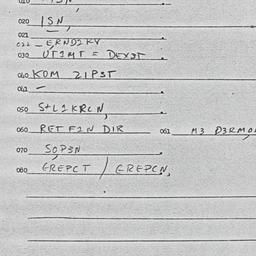 020 ISN,
021
022 - ERNDIKY
030 UTIMT = DEX3T
040 KOM ZIPST
041 -
050 S+LIKRLN,
060 RET FIN DIR 061 M3 D3RMO
070 SOP3N
080 EREPCT / EREPCN,